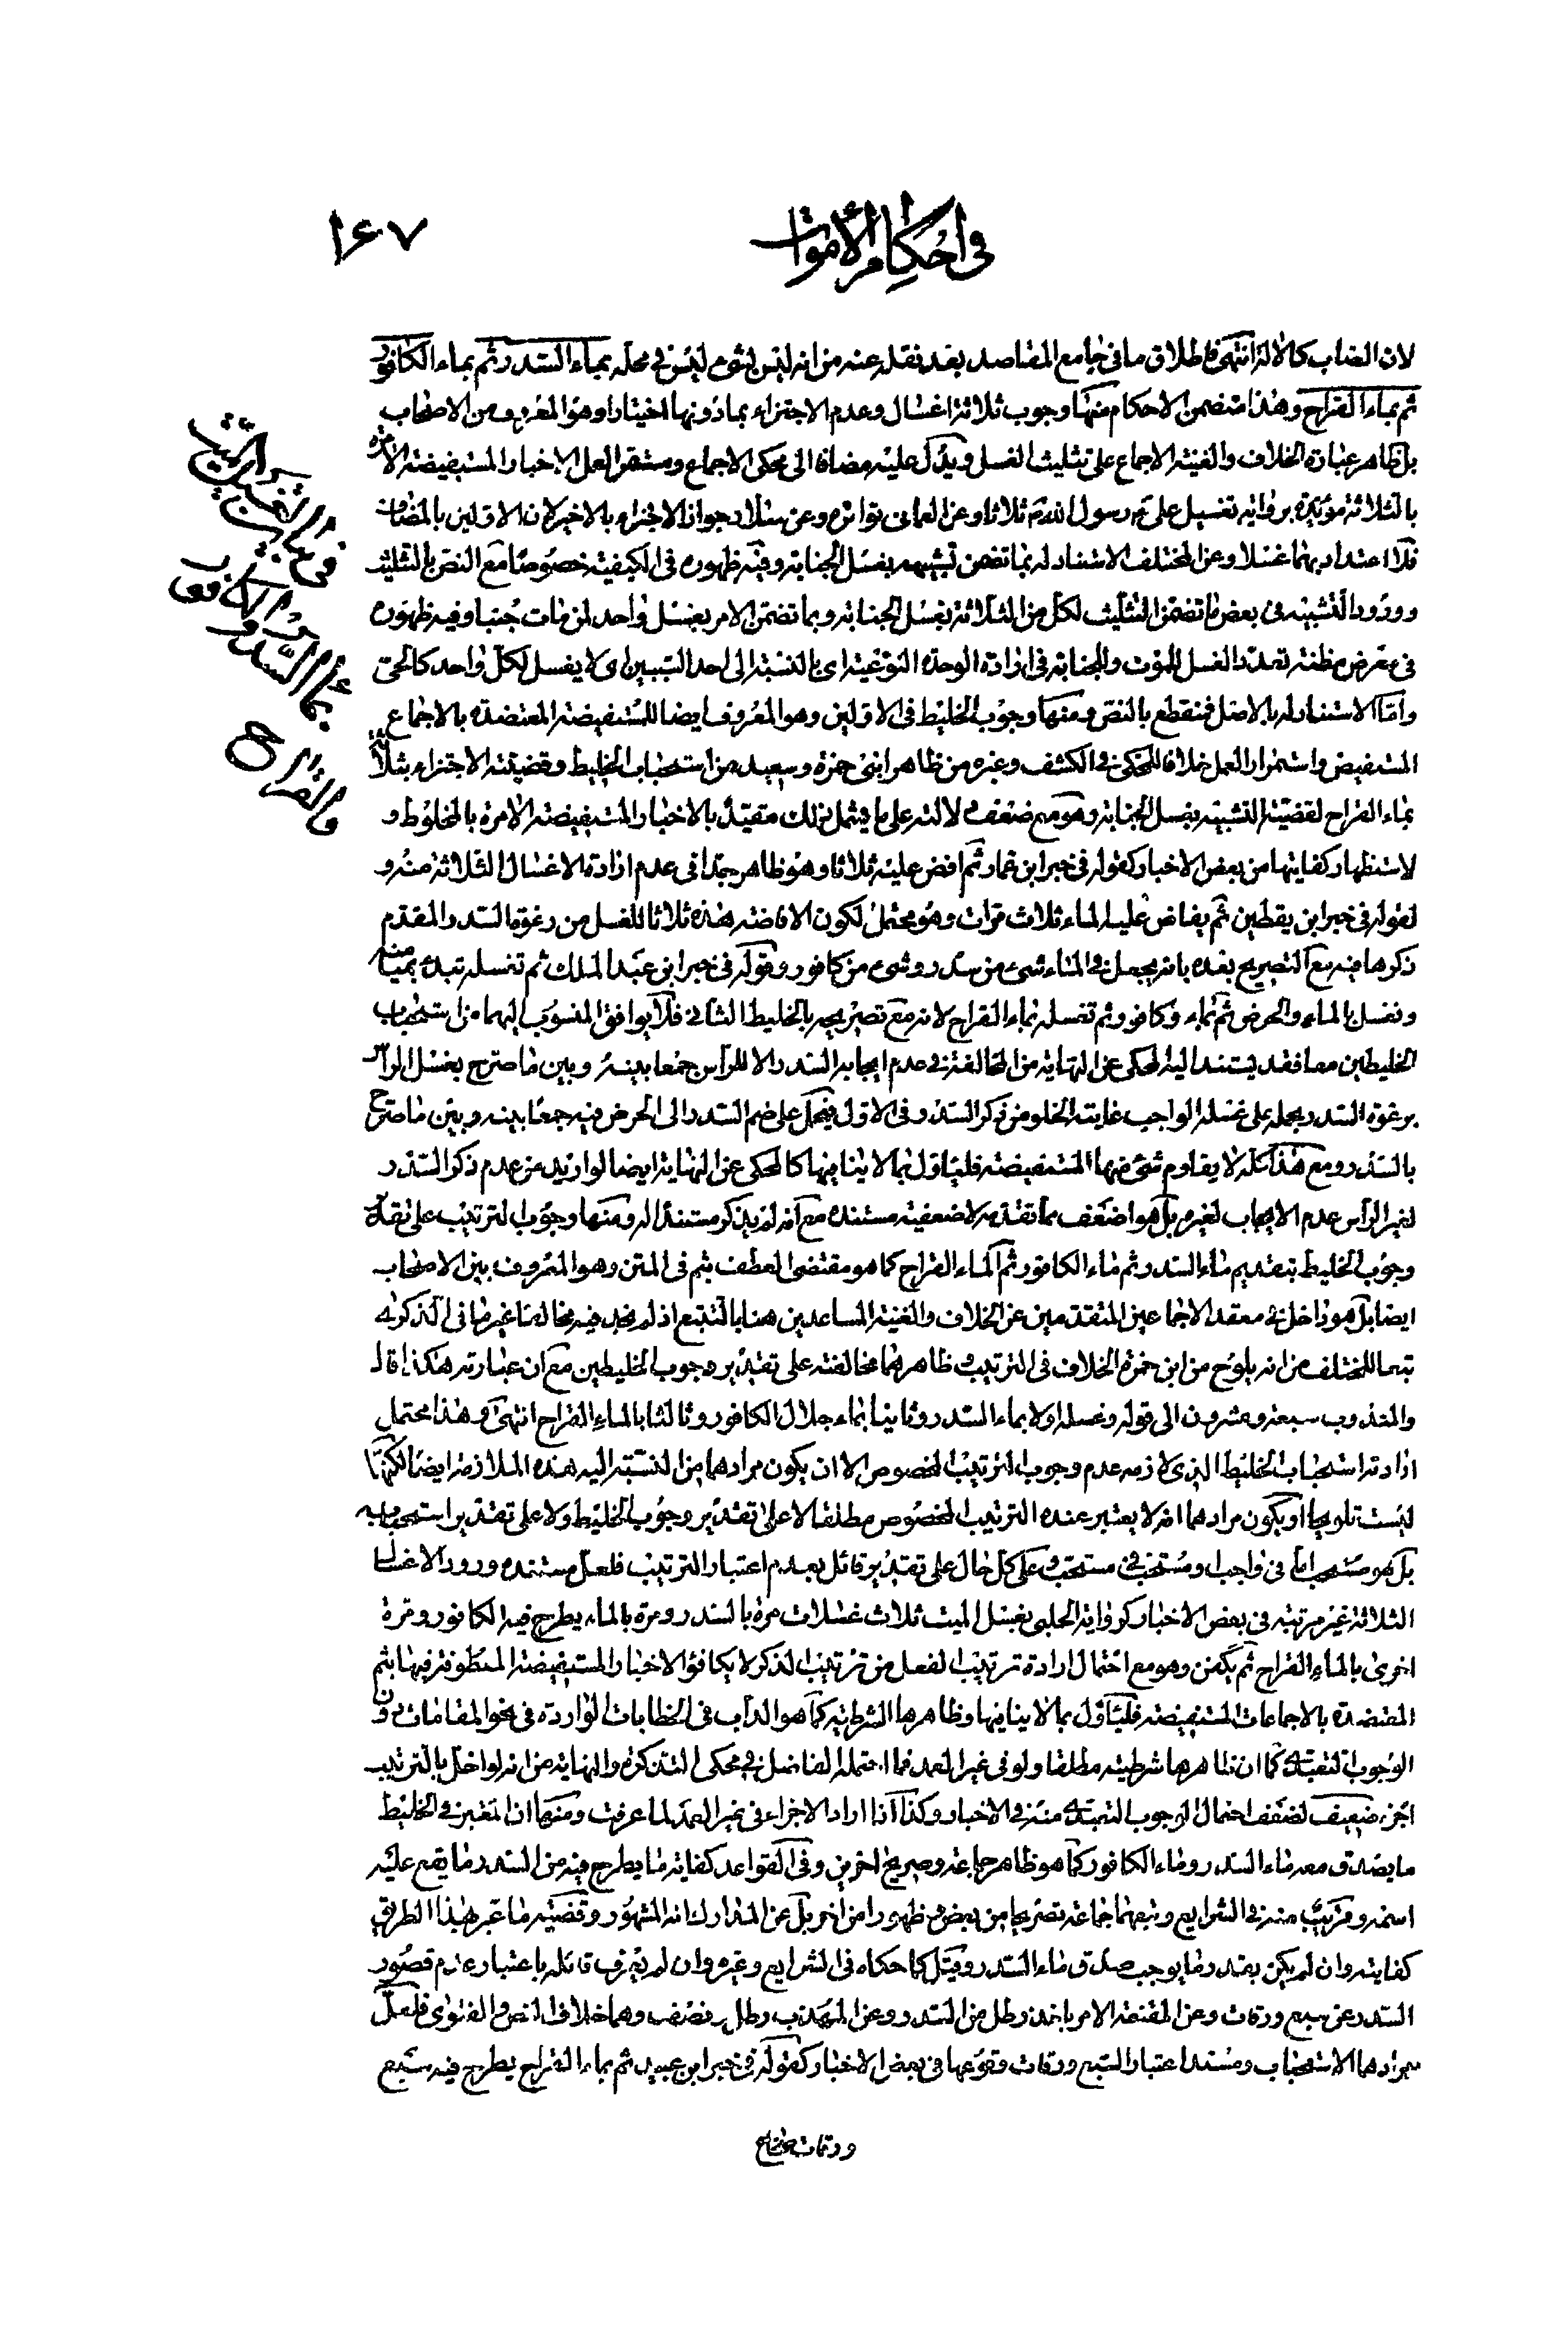 في احكام الأموات
١٦٧
لان الصاب كالالة انتهى فاطلاق ما في جامع المقاصد بعد نقله عنه من انه ليس بشيء ليس في محله بماء السدر ثم بماء الكافور
ثم بماء القراح وهذا متضمن لاحكام منها وجوب ثلاثة اغسال وعدم الاجتزاء بما دونها اختيارا وهو المعروف من الاصحاب
بل ظاهر عبارة الخلاف والغنية الاجماع على تثليث الغسل ويدل عليه مضافا الى محكي الاجماع ومستمر العمل الاخبار المستفيضة الامرة
بالثلاثة مؤيدة برواية تغسيل علي رسول الله ثلاثا وعن العماني تواتره وعن سلار جواز الاجتزاء بالاخير لان الاولين بالمضاف
فلا اعتداد بهما غسلا وعن المختلف الاستناد له بما تضمن تشبيهه بغسل الجنابة وفيه ظهوره في الكيفية خصوصا مع النص بالتثليث
وورود التشبيه في بعض ما تضمن التثليث لكل من الثلاثة بغسل الجنابة وبما تضمن الامر بغسل واحد لمن مات جنبا وفيه ظهوره
في معرض مظنة تعدد الغسل للموت والجنابة في ارادة الوحدة النوعية اي بالنسبة الى احد السببين اي لا يغسل لكل واحد كالحي
واما الاستناد له بالاصل فمنقطع بالنص ومنها وجوب الخليط في الاولين وهو المعروف ايضا للمستفيضة المعتضدة بالاجماع
المستفيض واستمرار العمل خلافا للمحكي في الكشف وغيره من ظاهر ابني حمزة وسعيد من استحباب الخليط وقضيته الاجتزاء بثلاثة
بماء القراح لقضية التشبيه بغسل الجنابة وهو مع ضعف دلالته على ما يشمل ذلك مقيد بالاخبار المستفيضة الامرة بالمخلوط و
لاستظهار كفايتها من بعض الاخبار كقوله في خبر ابن عمار ثم افض عليه ثلاثا وهو ظاهر جدا في عدم ارادة الاغسال الثلاثة منه و
لقوله في خبر ابن يقطين ثم يفاض عليه الماء ثلاث مرات وهو محتمل لكون الافاضة هذه ثلاثا للغسل من رغوة السدر المقدم
ذكرها فيه مع التصريح بعده بانه يجعل في الماء شيء من سدر وشيء من كافور وقوله في خبر ابن عبد الملك ثم تغسله تبدء بميامنه
وتغسله بالماء والحرض ثم بماء وكافور ثم تغسله بماء القراح لانه مع تصريحه بالخليط الثاني فلا يوافق المنسوب اليهما من استحباب
الخليطين معا فقد يستند اليه المحكي عن النهاية من المخالفة في عدم ايجابه السدر الا للرأس جمعا بينه وبين ما صرح بغسل الرأس
برغوة السدر بحمله على غسله الواجب غايته الخلو من ذكر السدر وفي الاول يحمل على ضم السدر الى الحرض فيه جمعا بينه وبين ما صرح
بالسدر ومع هذا كله لا يقاوم شيء منهما المستفيضة فليأول بما لا ينافيها كالمحكي عن النهاية ايضا لو اريد من عدم ذكر السدر
لغير الرأس عدم الايجاب لغيره بل هو اضعف مما تقدم لاضعفية مستنده مع انه لم يذكر مستندا له ومنها وجوب الترتيب على تقدير
وجوب الخليط بتقديم ماء السدر ثم ماء الكافور ثم الماء القراح كما هو مقتضى العطف بثم في المتن وهو المعروف بين الاصحاب
ايضا بل هو داخل في معقد الاجماعين المتقدمين عن الخلاف والغنية المساعدين هنا بالتتبع اذ لم نجد فيه مخالفا غير ما في الذكرى
تبعا للمختلف من انه يلوح من ابن حمزة الخلاف في الترتيب وظاهرهما مخالفته على تقدير وجوب الخليطين مع ان عبارته هكذا قال
والمندوب سبعة وعشرون الى قوله وغسله اولا بماء السدر وثانيا بماء جلال الكافور وثالثا بالماء القراح انتهى وهذا محتمل
ارادته استحباب الخليط الذي لازمه عدم وجوب الترتيب المخصوص الا ان يكون مرادهما من النسبة اليه هذه الملازمة ايضا لكنها
ليست تلويحا او يكون مرادهما انه لا يعتبر عنده الترتيب المخصوص مطلقا لا على تقدير وجوب الخليط ولا على تقدير استحبابه
بل هو مستحب اما في واجب او مستحب في مستحب وعلى كل حال على تقدير قائل بعدم اعتبار الترتيب فلعل مستنده ورود الاغسال
الثلاثة غير مرتبة في بعض الاخبار كرواية الحلبي يغسل الميت ثلاث غسلات مرة بالسدر ومرة بالماء يطرح فيه الكافور ومرة
اخرى بالماء القراح ثم يكفن وهو مع احتمال ارادة ترتيب الفعل من ترتيب الذكر لا يكافؤ الاخبار المستفيضة المعطوفة فيها بثم
المعتضدة بالاجماعات المستفيضة فليأول بما لا ينافيها وظاهرها الشرطية كما هو الدأب في الخطابات الواردة في نحو المقامات دون
الوجوب التعبدي كما ان ظاهرها شرطيته مطلقا ولو في غير العمد فما احتمله الفاضل في محكي التذكرة والنهاية من انه لو اخل بالترتيب
اجزء ضعيف لضعف احتمال الوجوب التعبدي منه في الاخبار وكذا اذا اراد الاجزاء في غير العمد لما عرفت ومنها ان المعتبر في الخليط
ما يصدق معه ماء السدر وماء الكافور كما هو ظاهر جماعة وصريح اخرين وفي القواعد كفاية ما يطرح فيه من السدر ما يقع عليه
اسمه وقريب منه في الشرايع وتبعهما جماعة تصريحا من بعض وظهورا من اخر بل عن المدارك انه المشهور وقضية ما عبر بهذا الطريق
كفايته وان لم يكن بقدر ما يوجب صدق ماء السدر وقيل كما حكاه في الشرايع وغيره وان لم يعرف قائله باعتبار عدم قصور
السدر عن سبع ورقات وعن المقنعة الامر باخذ رطل من السدر وعن المهذب رطل ونصف وهما خلاف النص والفتوى فلعل
مرادهما الاستحباب ومستند اعتبار السبع ورقات وقوعها في بعض الاخبار كقوله في خبر ابن عبيد ثم بماء القراح يطرح فيه سبع
ورقات صحاح
بماء السدر
والقراح